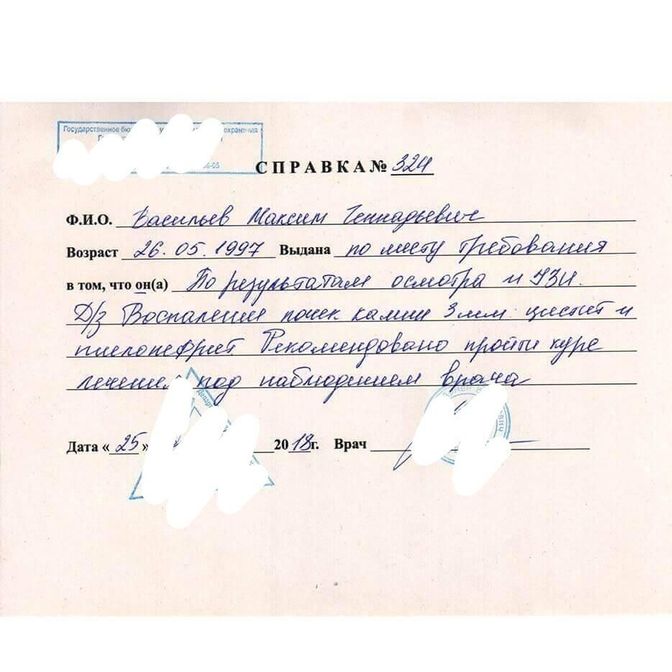 Государственное бюд
охранения
СПРАВКА № 324
Ф.И.О. Васильев Максим Геннадьевич
Возраст 26.05.1997 Выдана по месту требования
в том, что он(а) По результатам осмотра и УЗИ.
Д/з Воспаление почек камни 3 мм. цистит и
пиелонефрит Рекомендовано пройти курс
лечения под наблюдением врача
Дата «25» 2018г. Врач